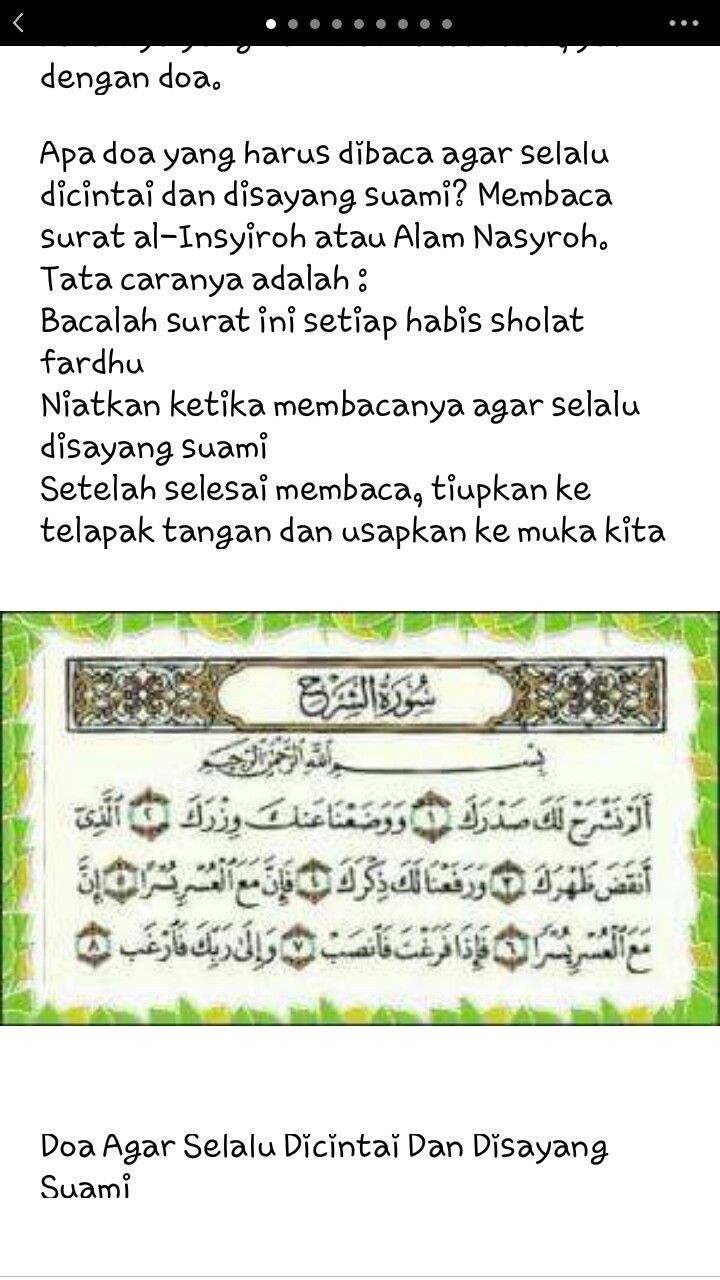 dengan doa.
Apa doa yang harus dibaca agar selalu
dicintai dan disayang suami? Membaca
surat al-Insyiroh atau Alam Nasyroh.
Tata caranya adalah :
Bacalah surat ini setiap habis sholat
fardhu
Niatkan ketika membacanya agar selalu
disayang suami
Setelah selesai membaca, tiupkan ke
telapak tangan dan usapkan ke muka kita
سُورَةُ الشَّرْحِ
بِسْمِ اللَّهِ الرَّحْمَٰنِ الرَّحِيمِ
أَلَمْ نَشْرَحْ لَكَ صَدْرَكَ ١ وَوَضَعْنَا عَنكَ وِزْرَكَ ٢ ٱلَّذِىٓ
أَنقَضَ ظَهْرَكَ ٣ وَرَفَعْنَا لَكَ ذِكْرَكَ ٤ فَإِنَّ مَعَ ٱلْعُسْرِ يُسْرًا ٥ إِنَّ
مَعَ ٱلْعُسْرِ يُسْرًا ٦ فَإِذَا فَرَغْتَ فَٱنصَبْ ٧ وَإِلَىٰ رَبِّكَ فَٱرْغَب ٨
Doa Agar Selalu Dicintai Dan Disayang
Suami